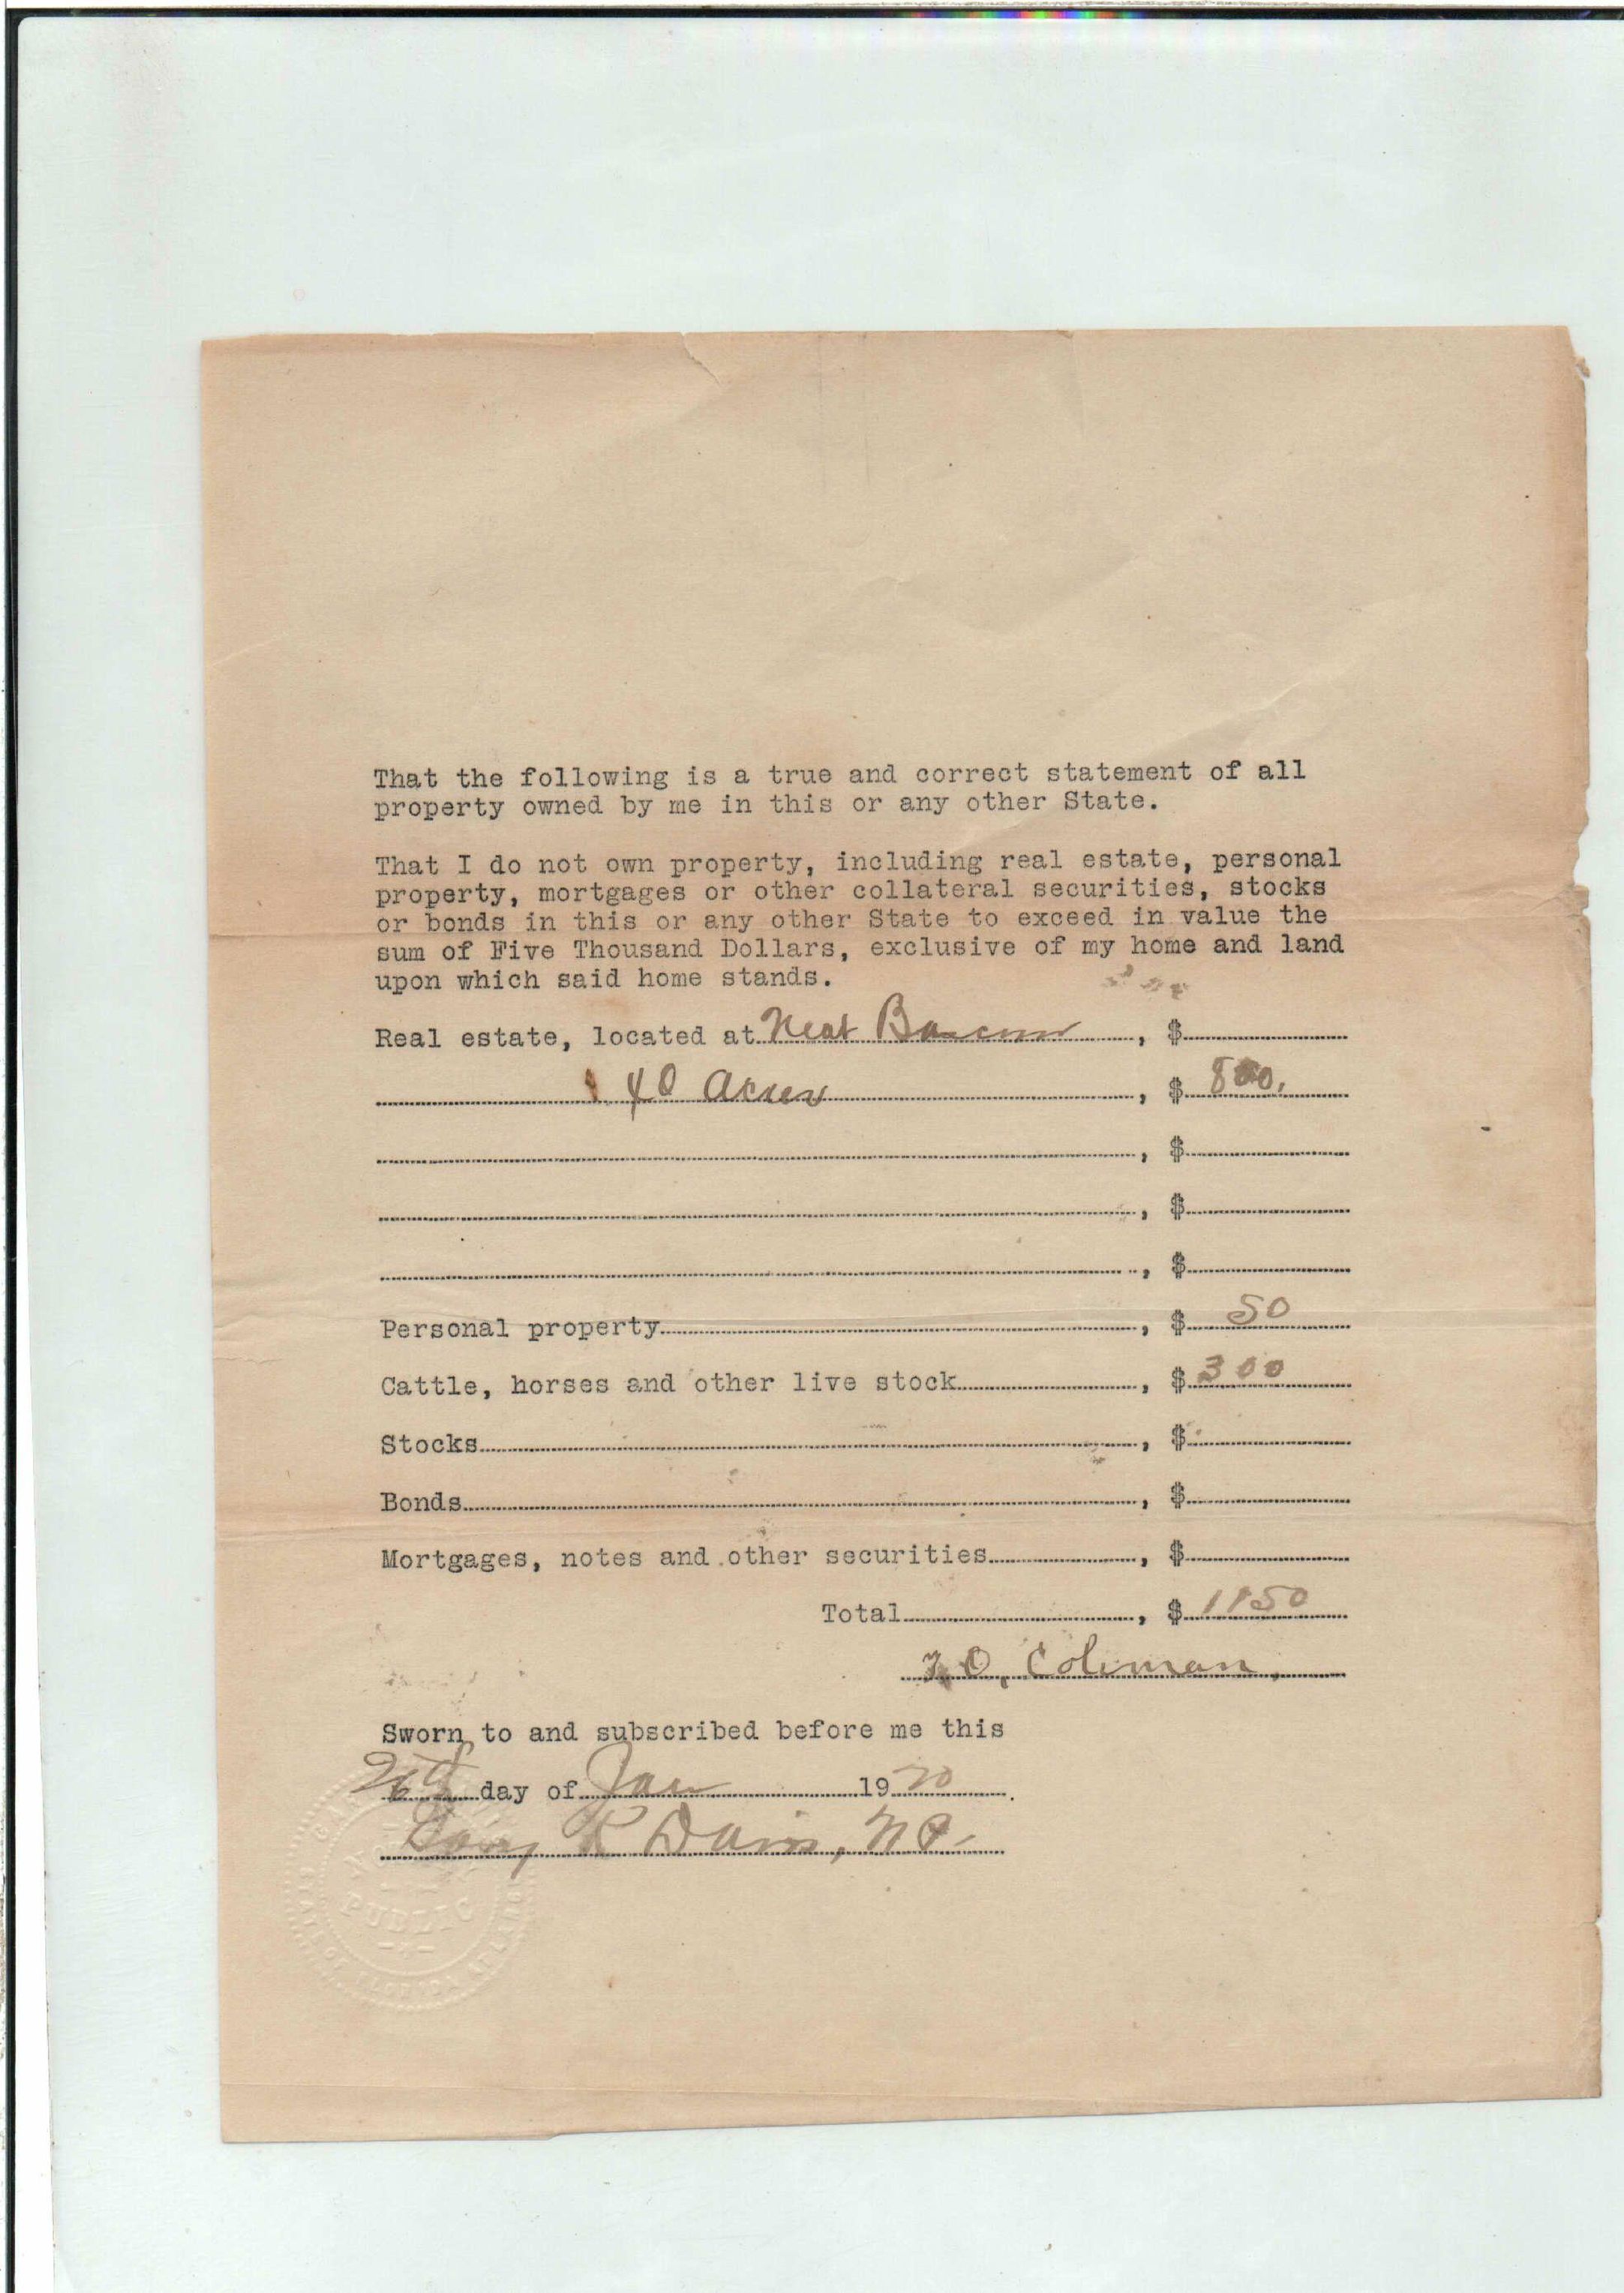 That the following is a true and correct statement of all
property owned by me in this or any other State.
That I do not own property, including real estate, personal
property, mortgages or other collateral securities, stocks
or bonds in this or any other State to exceed in value the
sum of Five Thousand Dollars, exclusive of my home and land
upon which said home stands.
Real estate, located at Near Bascom, $
40 Acres, $ 800.
, $
, $
, $
Personal property, $ 50
Cattle, horses and other live stock, $ 300
Stocks, $
Bonds, $
Mortgages, notes and other securities, $
Total, $ 1150
O. Coleman
Sworn to and subscribed before me this
26th day of Jan 1920.
R Davis, NP
PUBLIC
STATE OF FLORIDA AT LARGE